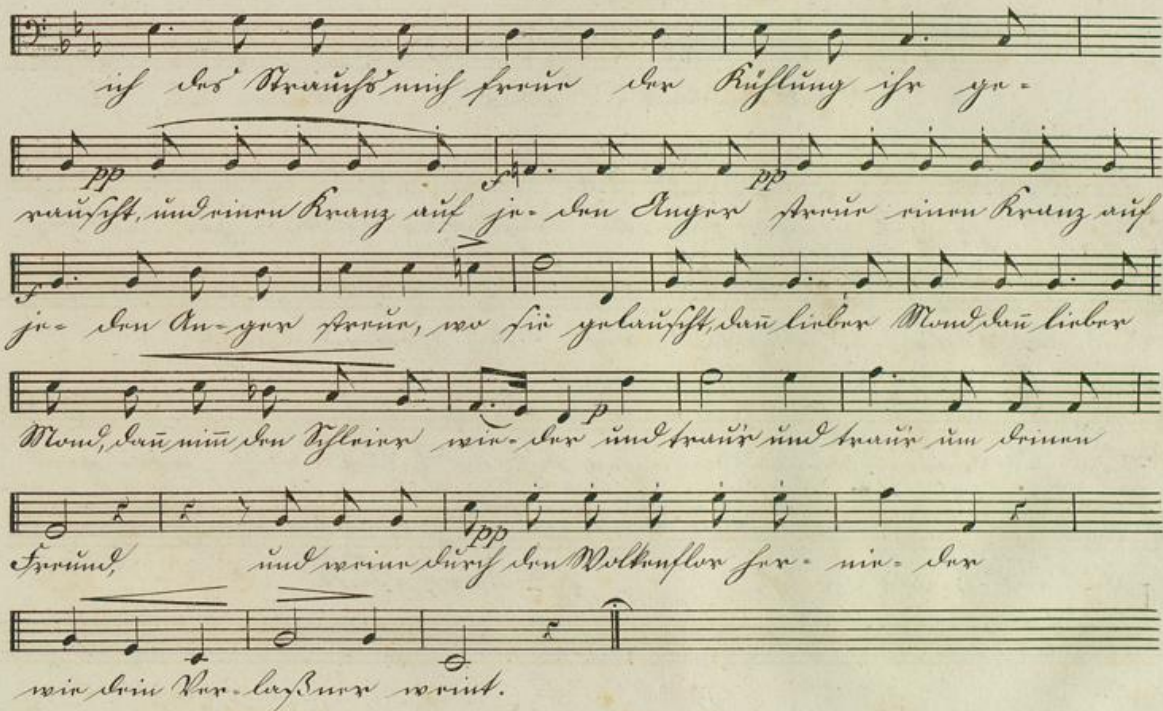 ich des Strauchs mich freue der Kühlung ihr ge-
pp f pp
rauscht, und einen Kranz auf je- den Anger streue einen Kranz auf
f
je- den An- ger streue, wo sie gelauscht, dan̄ lieber Mond dan̄ lieber
p
Mond, dan̄ nim̄ den Schleier wie- der und traur und traur um deinen
pp
Freund, und weine durch den Wolkenflor her- nie- der
wie dein Ver- laßner weint.